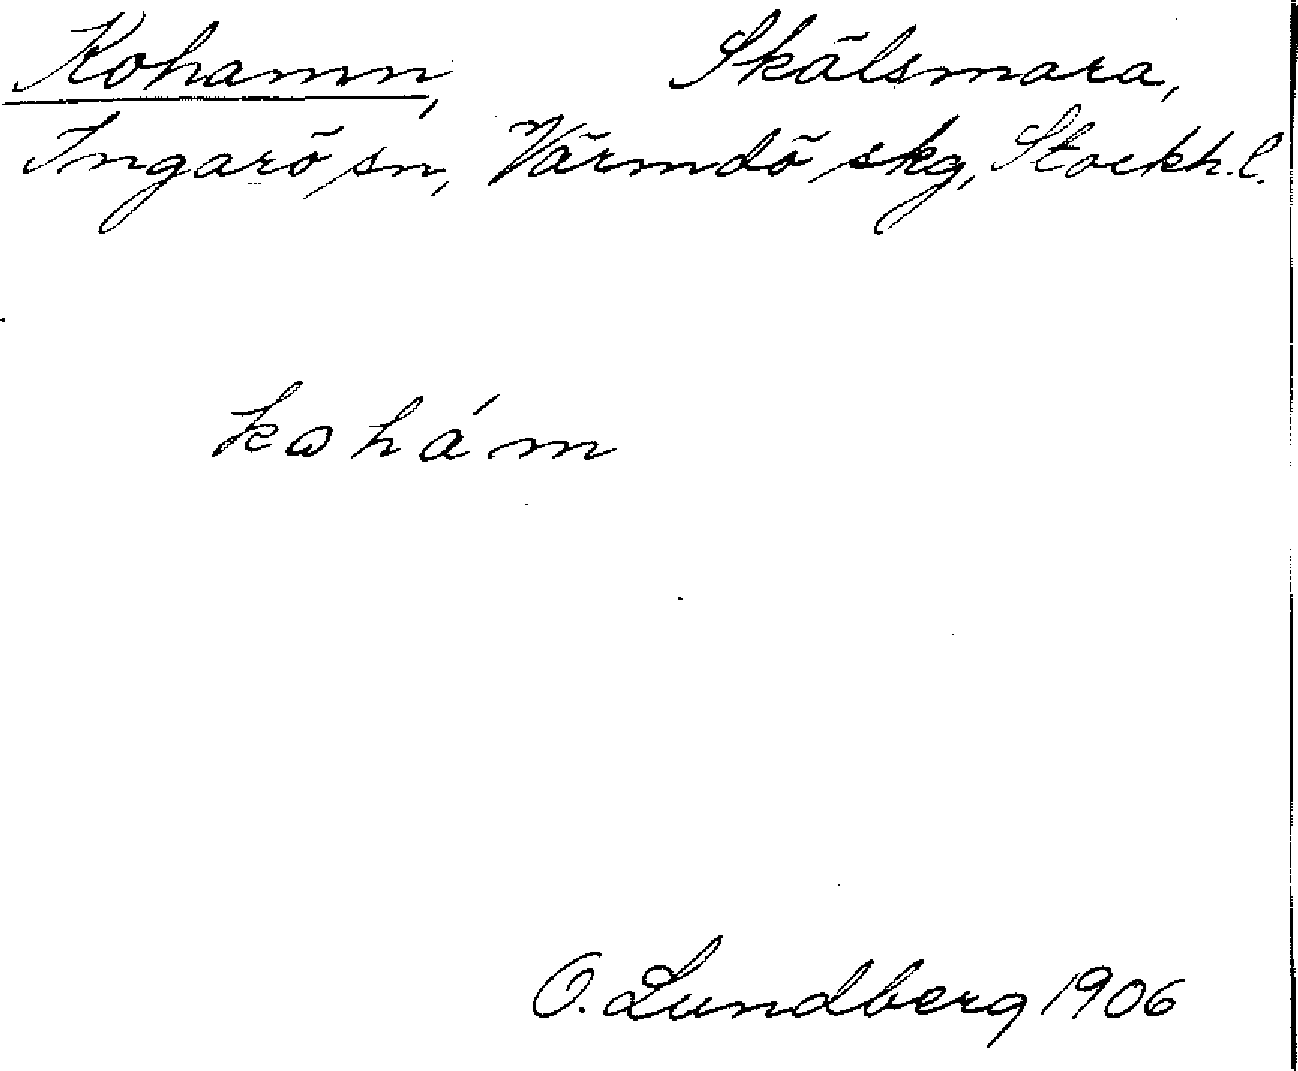 Kohamn, Skälsmara,
Ingarö sn, Värmdö skg, Stockh. l.
kohám
O. Lundberg 1906